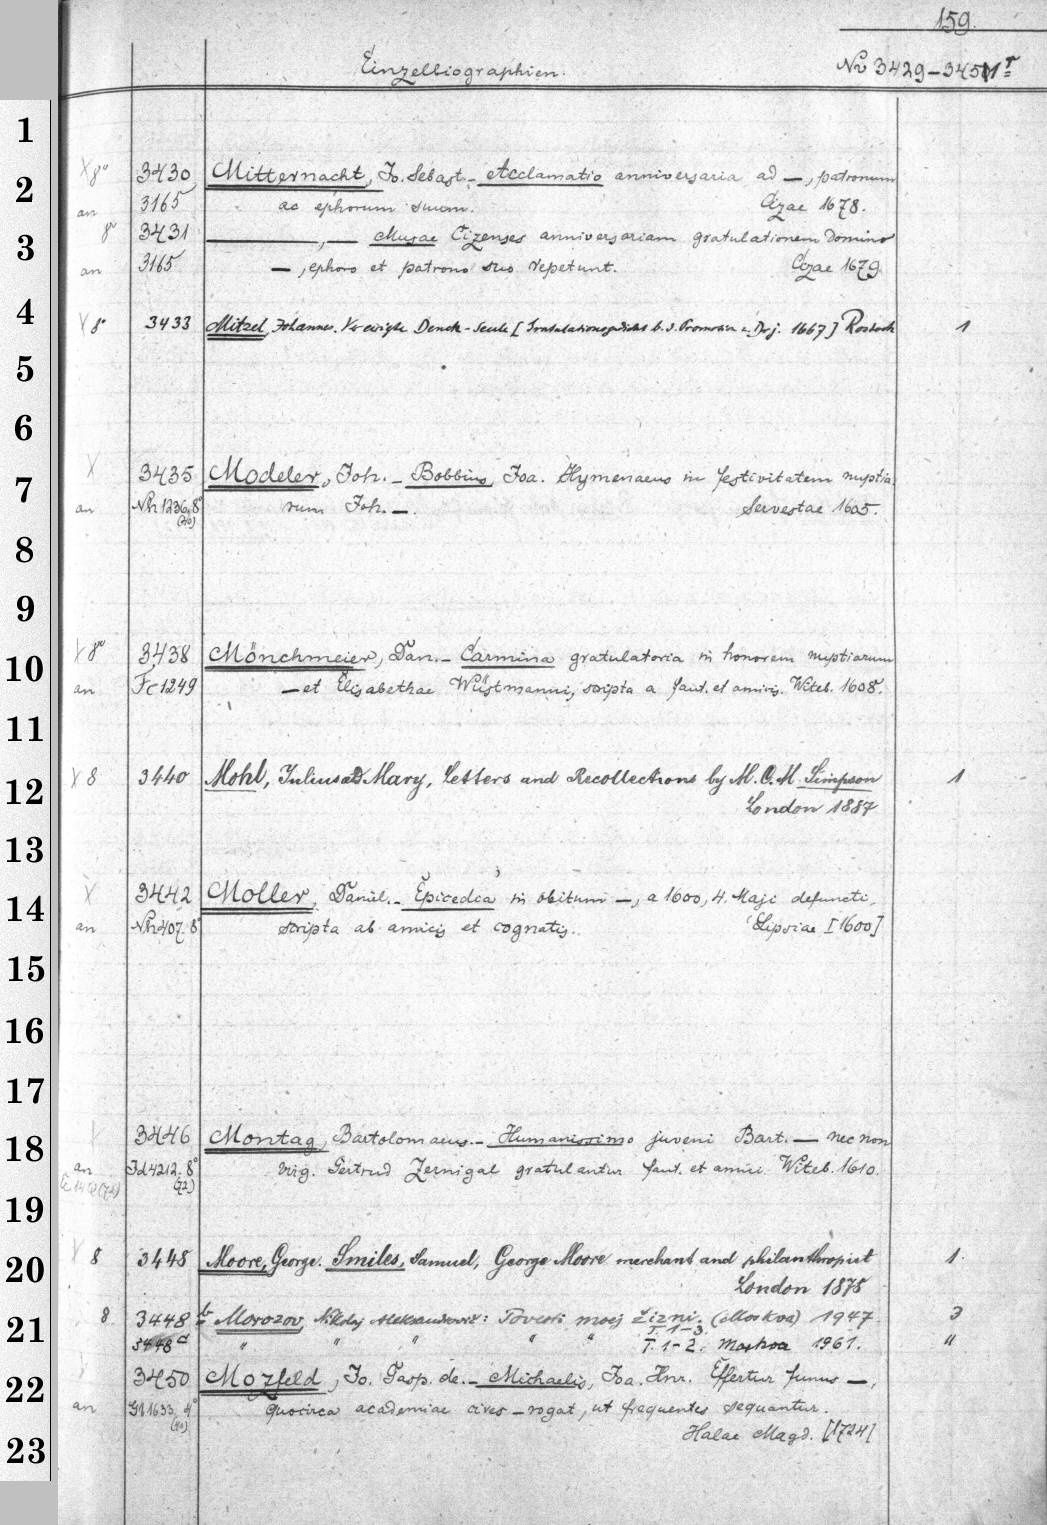 159.
Einzelbiographien.
No 3429-3451
1
X 8° 3430 Mitternacht, Jo. Sebast. - Acclamatio anniversaria ad —, patronum
2
an 3165 ac ephorum suum. Cizae 1678.
8° 3431 ——, — Musae Cizenses anniversariam gratulationem Domino
3
an 3165 —, ephoro et patrono suo repetunt. Cizae 1679.
4
X 8° 3433 Mitzel, Johannes. Denck-Seule [ 1667] Rostock 1
5
6
X 3435 Modeler, Joh. - Bobbius, Joa. Hymenaeus in festivitatem nuptia
7
an Nh 1236, 8° (20) rum Joh. —. Servestae 1605.
8
9
X 8° 3438 Mönchmeier, Dan. - Carmina gratulatoria in honorem nuptiarum
10
an Fc 1249 — et Elisabethae Wüstmanni, scripta a faut. et amicis. Witeb. 1608.
11
X 8 3440 Mohl, Julius and Mary, Letters and Recollections by M. C. M. Simpson 1
12
London 1887
13
X 3442 Moller, Daniel. - Epicedia in obitum —, a 1600, 4. Maji defuncti,
14
an Nh 407. 8° scripta ab amicis et cognatis. Lipsiae [1600]
15
16
17
3446 Montag, Bartolomaeus. - Humanissimo juveni Bart. — nec non
18
an Id 4212. 8° (72) virg. Gertrud Zernigal gratulantur faut. et amici. Witeb. 1610.
19
X 8 3448 Moore, George. Smiles, Samuel, George Moore merchant and philanthropist 1
20
London 1878
8 3448 b Morozov, Nikolaj Aleksandrovič: Povesti moej žizni. (Moskva) 1947 3
21
T. 1-3
3448 a " " " " " T. 1-2. Moskva 1961. "
3450 Mozfeld, Jo. Casp. de. - Michaelis, Joa. Hnr. Effertur funus —,
22
an 1633, 4° quocirca academiae cives - rogat, ut frequentes sequantur.
23
Halae Magd. [1724]